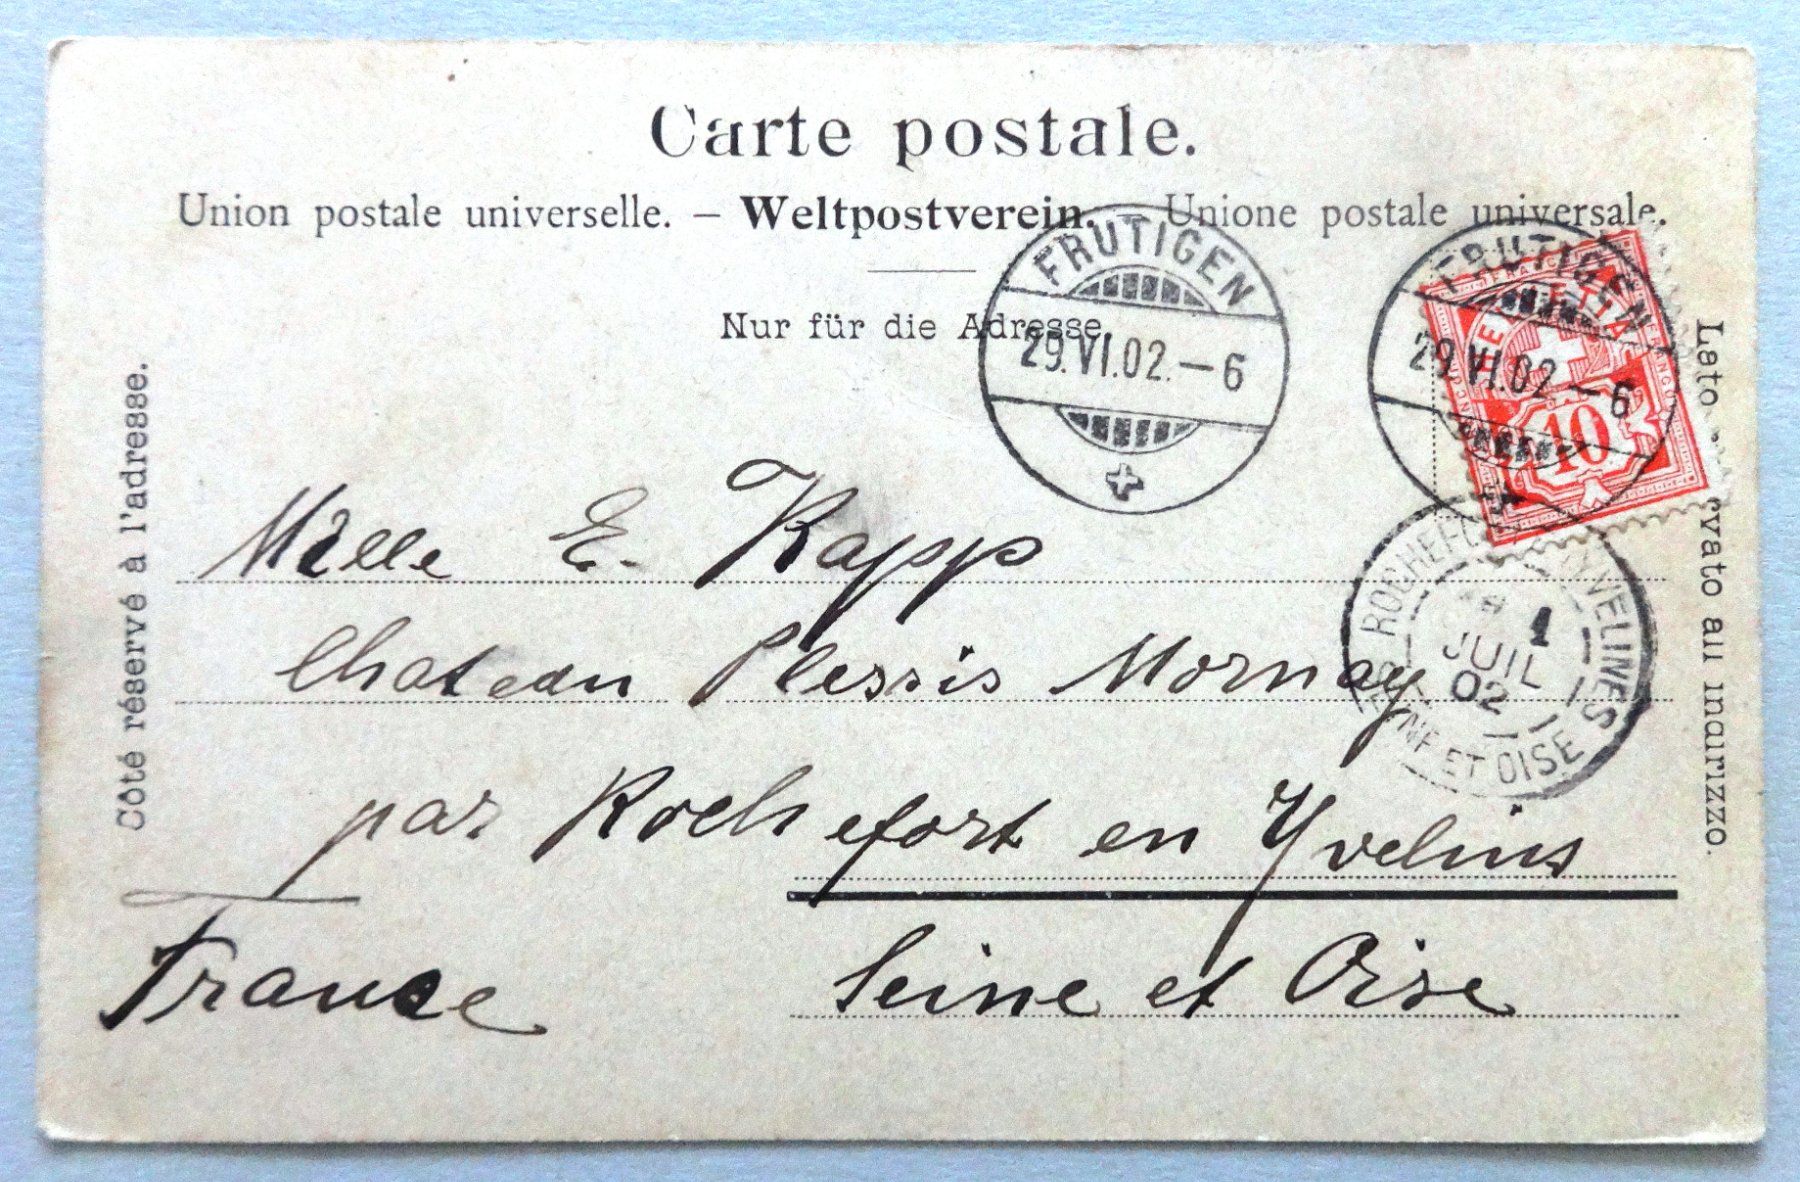 Carte postale.
Union postale universelle. – Weltpostverein. – Unione postale universale.
Nur für die Adresse.
Côté réservé à l'adresse.
Lato rvato au indirizzo.
FRUTIGEN
29.VI.02.–6
FRUTIGEN
29.VI.02.–6
HELVETIA
10
ROCHEFORT EN YVELINES
1
JUIL
02
SEINE ET OISE
Mlle E. Rapp
Chateau Plessis Mornay
par Rochefort en Yvelins
Seine et Oise
France